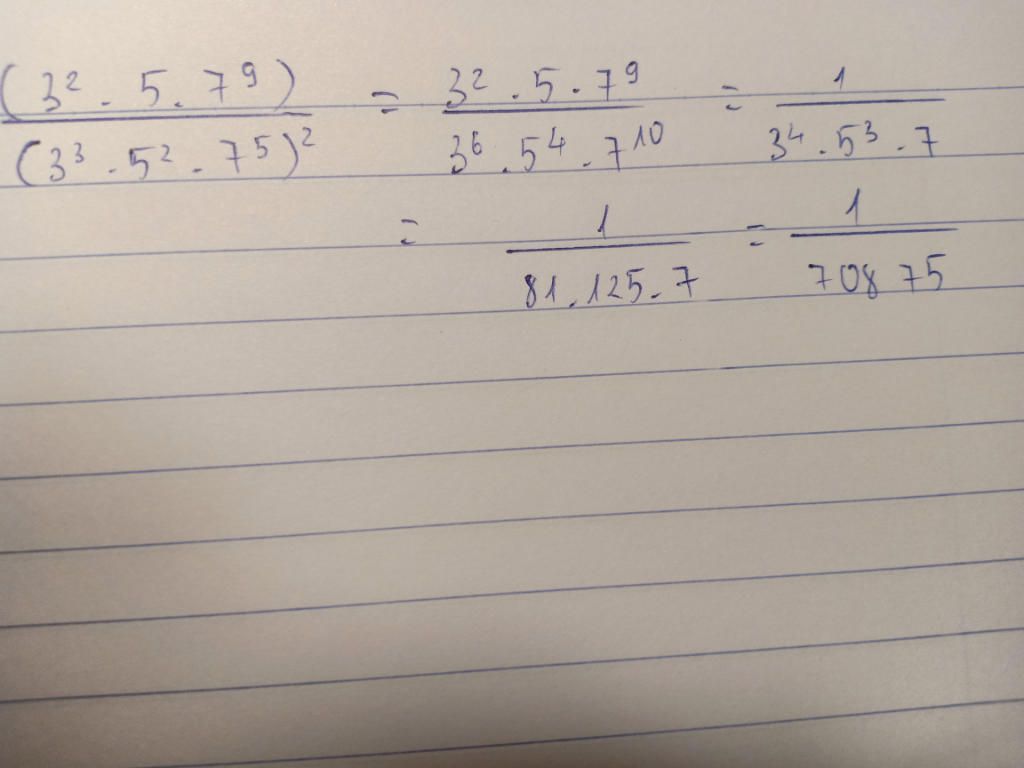 (3² . 5 . 7⁹) / (3³ . 5² . 7⁵)² = 3² . 5 . 7⁹ / 3⁶ . 5⁴ . 7¹⁰ = 1 / 3⁴ . 5³ . 7
= 1 / 81 . 125 . 7 = 1 / 70875